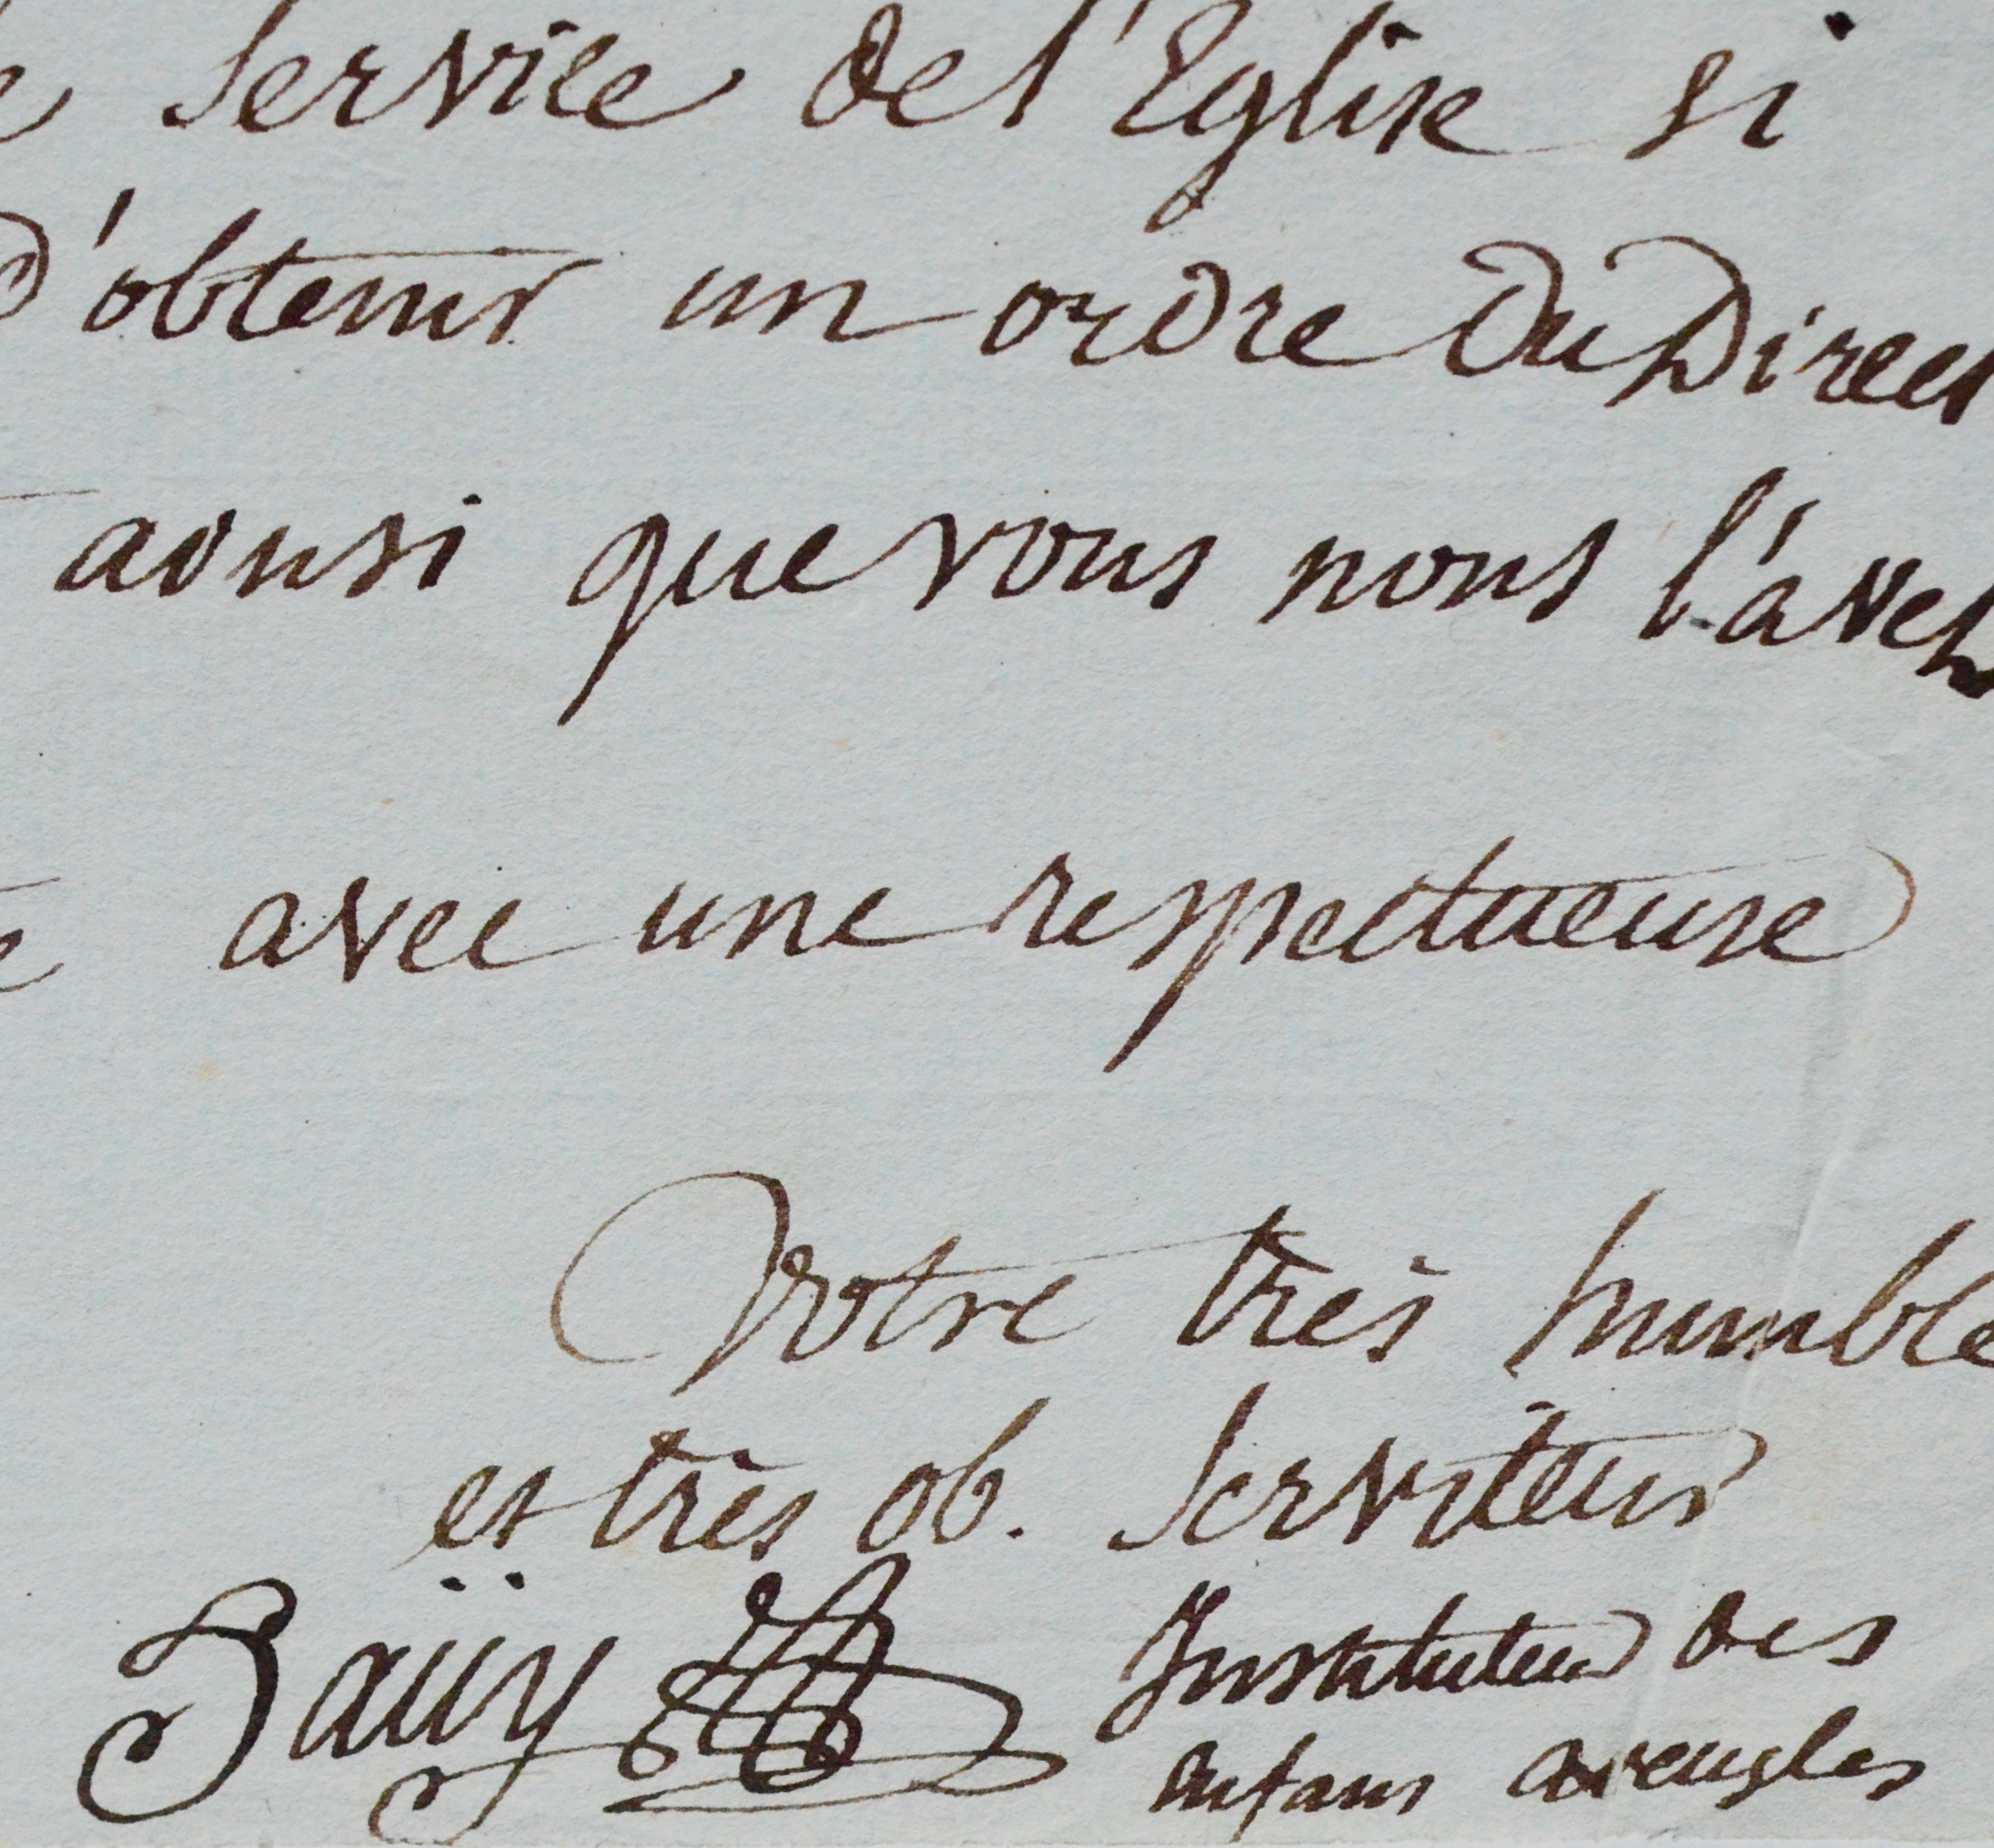 Service de l'Eglise si
d'obtenir un ordre du Direct
ainsi que vous nous l'avez
avec une respectueuse
Votre très humble
et très ob. Serviteur
haüy Instituteur des
enfans aveugles